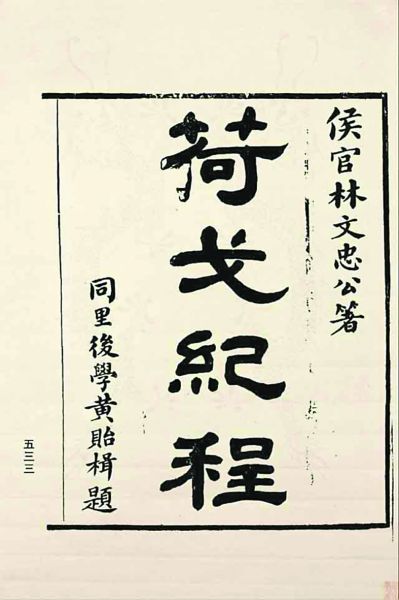 侯官林文忠公箸
荷戈紀程
同里後學黃貽楫題
五三三